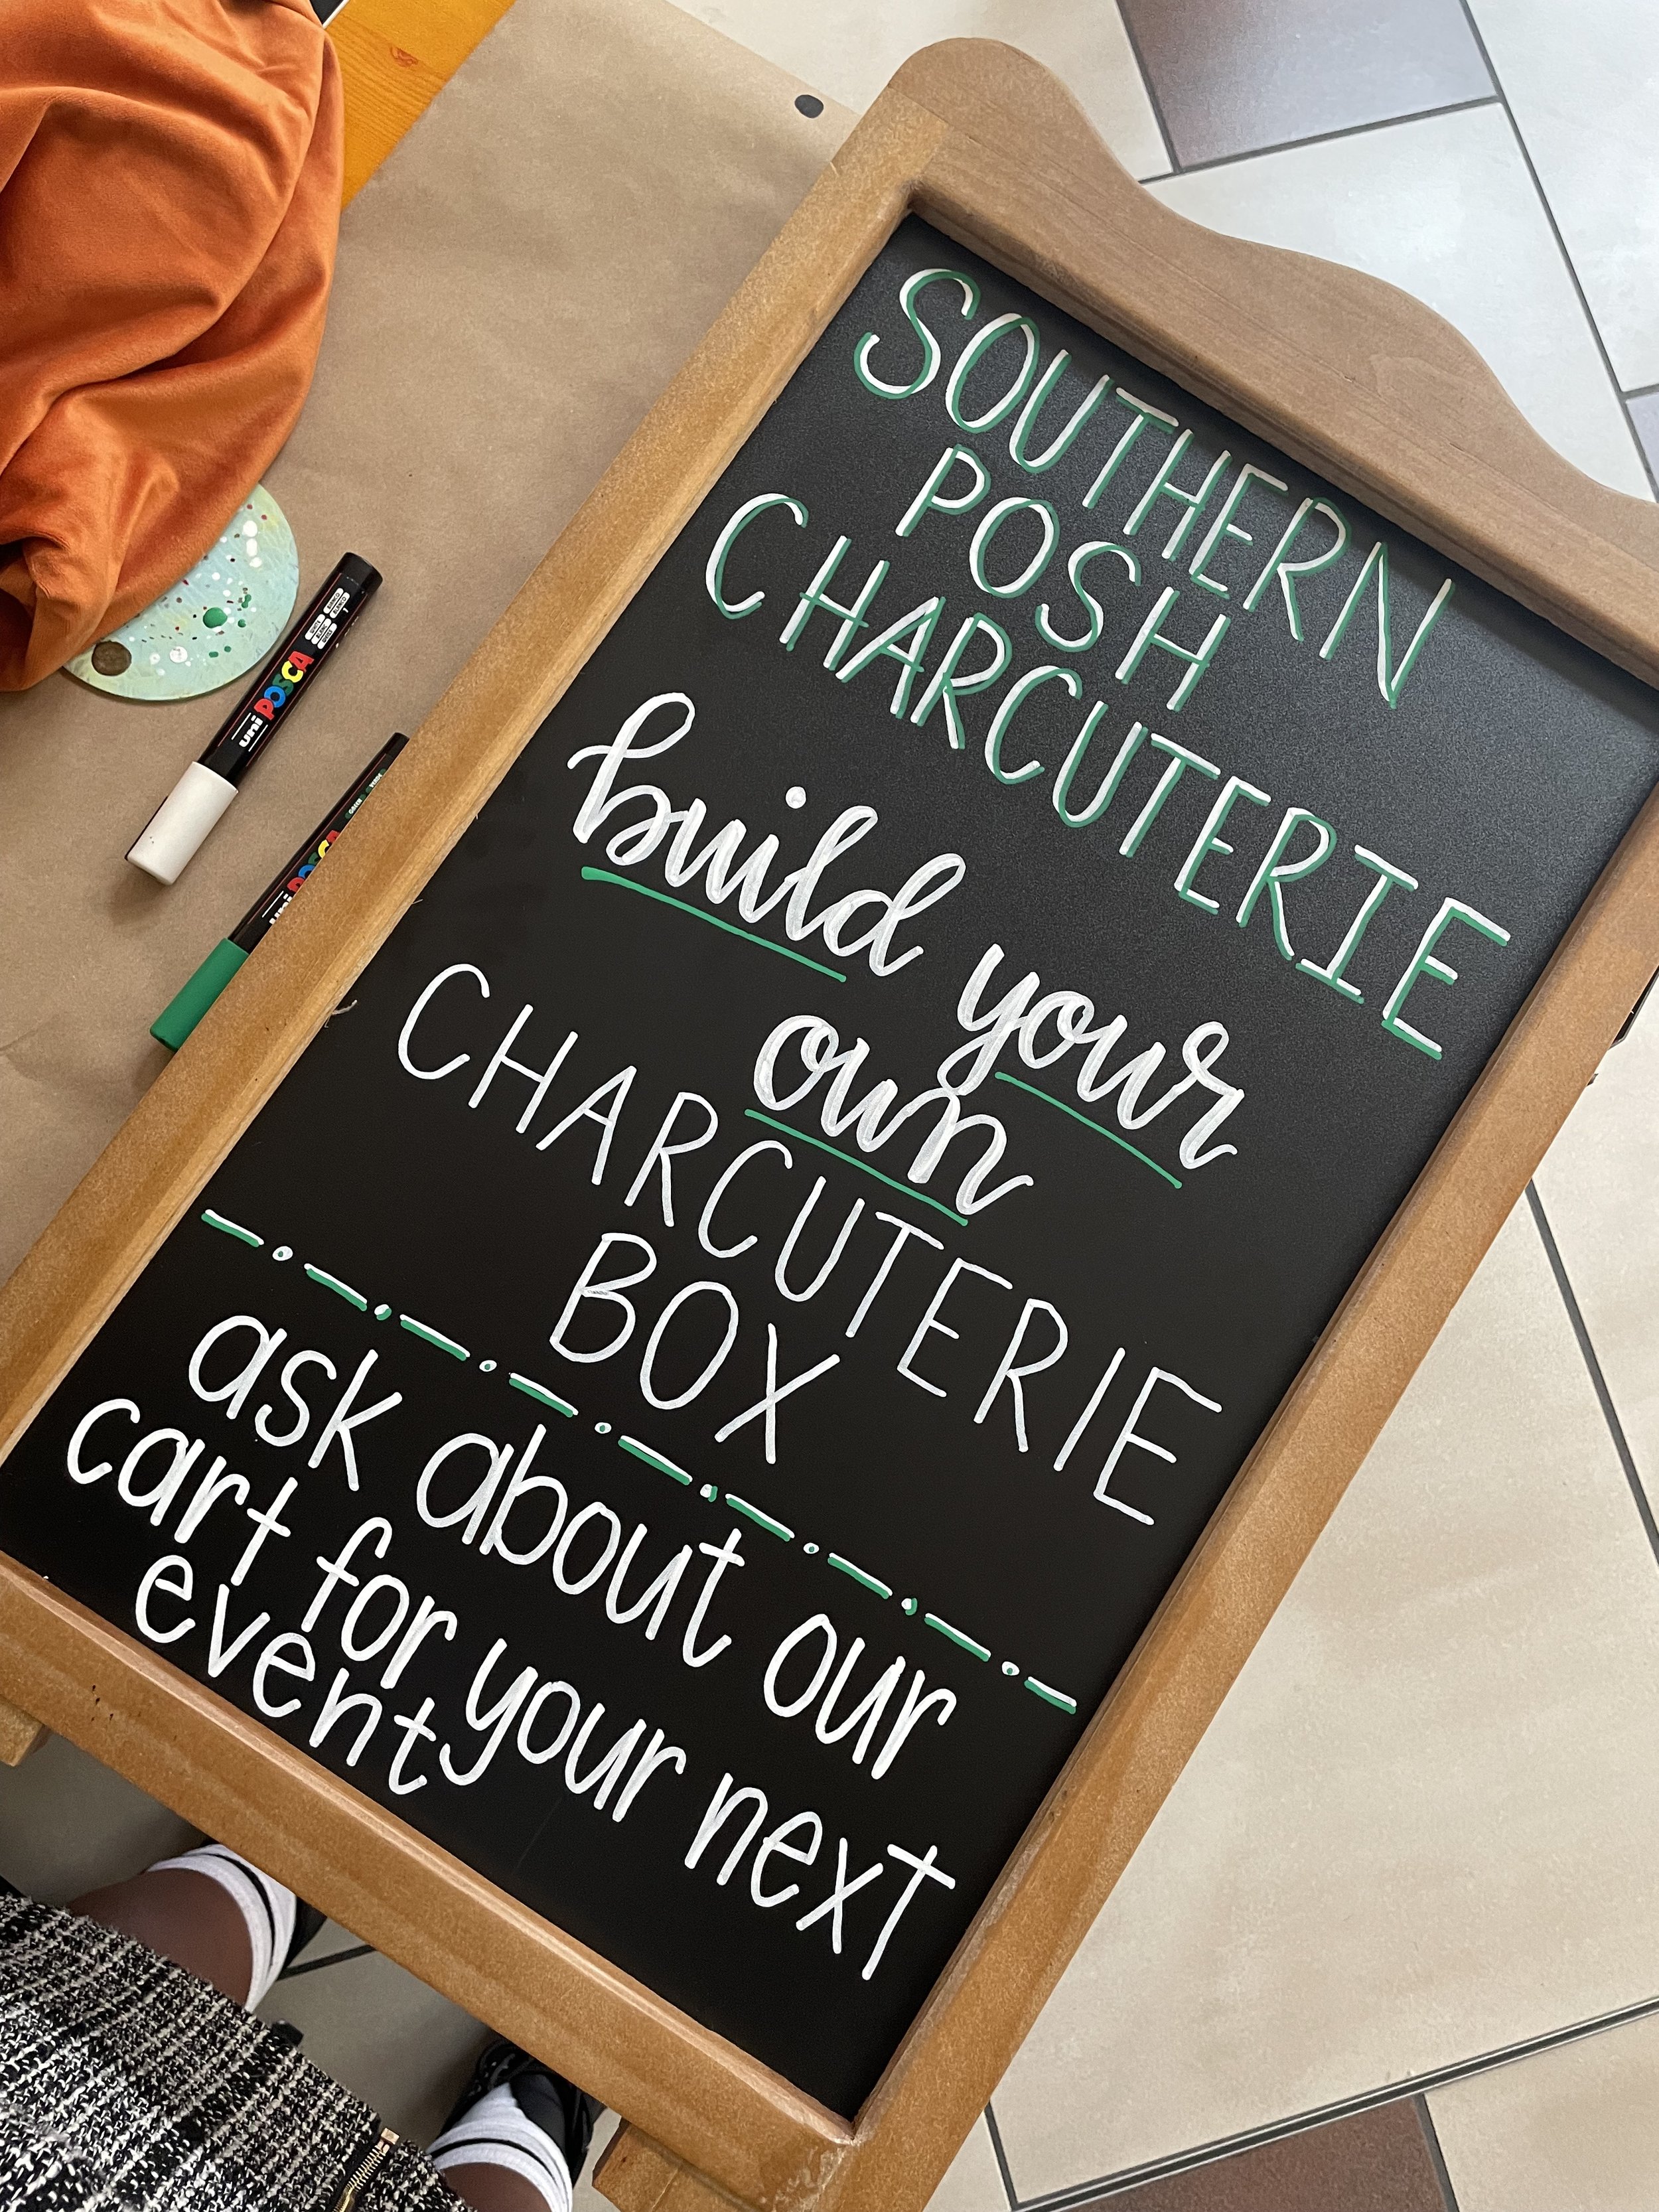 SOUTHERN
POSH
CHARCUTERIE
build your
own
CHARCUTERIE
BOX
ask about our
cart for your next
event
uni POSCA
uni POSCA